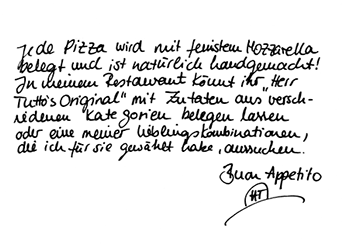 Jede Pizza wird mit feinstem Mozzarella
belegt und ist natürlich handgemacht!
In meinem Restaurant könnt ihr „Herr
Tutto's Original" mit Zutaten aus versch-
iedenen Kategorien belegen lassen
oder eine meiner Lieblingskombinationen,
die ich für sie gewählt habe, aussuchen.
Buon Appetito
HT